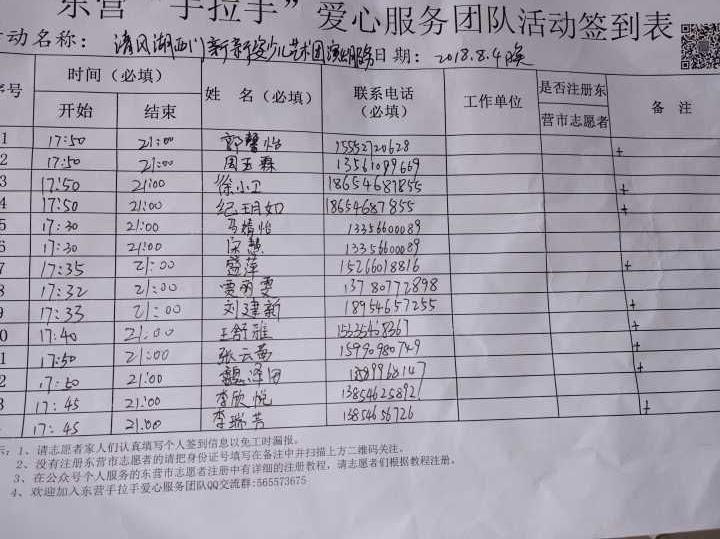 东营“手拉手”爱心服务团队活动签到表
动名称： 清风湖西门新新娃少儿艺术团演出服务 日期： 2018.8.4晚
序号 时间（必填） 姓 名（必填） 联系电话（必填） 工作单位 是否注册东营市志愿者 备 注
开始 结束
1 17:50 21:00 郭馨怡 15552720628 +
2 17:50 21:00 周玉霖 13561099669
3 17:50 21:00 徐小卫 18654687855 +
4 17:50 21:00 纪玥如 18654687855 +
5 17:30 21:00 马婧怡 13356600089
6 17:30 21:00 13356600089
7 17:35 21:00 盛萍 15266018816 +
8 17:32 21:00 贾丽雯 13780772898
9 17:33 21:00 刘建新 18954657255 +
0 17:40 21:00 王舒雅 +
1 17:50 21:00 张云茜 15990980749 +
2 17:50 21:00 魏泽田 +
3 17:45 21:00 李欣悦 13854625892
17:45 21:00 李瑞芳 13854656726 +
示：1、请志愿者家人们认真填写个人签到信息以免工时漏报。
2、没有注册东营市志愿者的请把身份证号填写在备注中并扫描上方二维码关注。
3、在公众号个人服务的东营市志愿者注册中有详细的注册教程，请志愿者们根据教程注册。
4、欢迎加入东营手拉手爱心服务团队QQ交流群:565573675